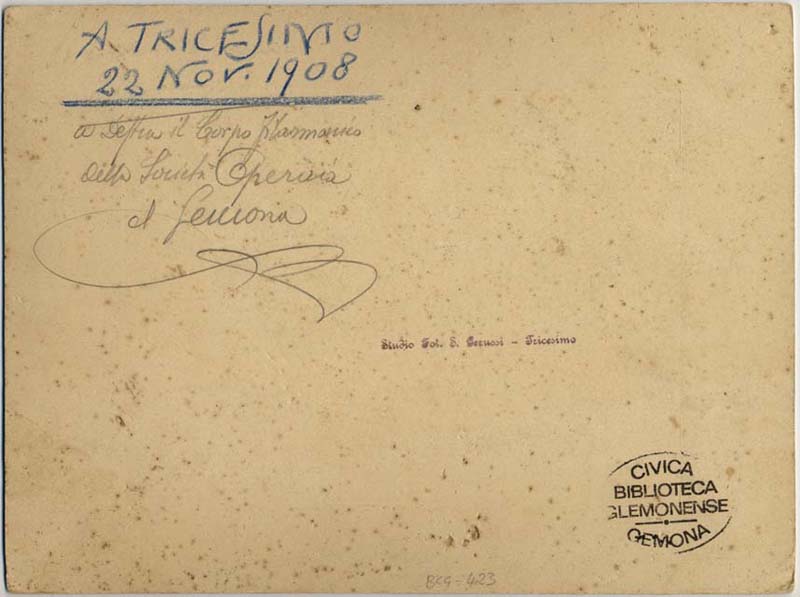 A TRICESIMO
22 NOV. 1908
a Destra il Corpo filarmonico
della Società Operaia
di Gemona
Studio Fot. S. Gerussi - Tricesimo
CIVICA
BIBLIOTECA
GLEMONENSE
GEMONA
BCG-423